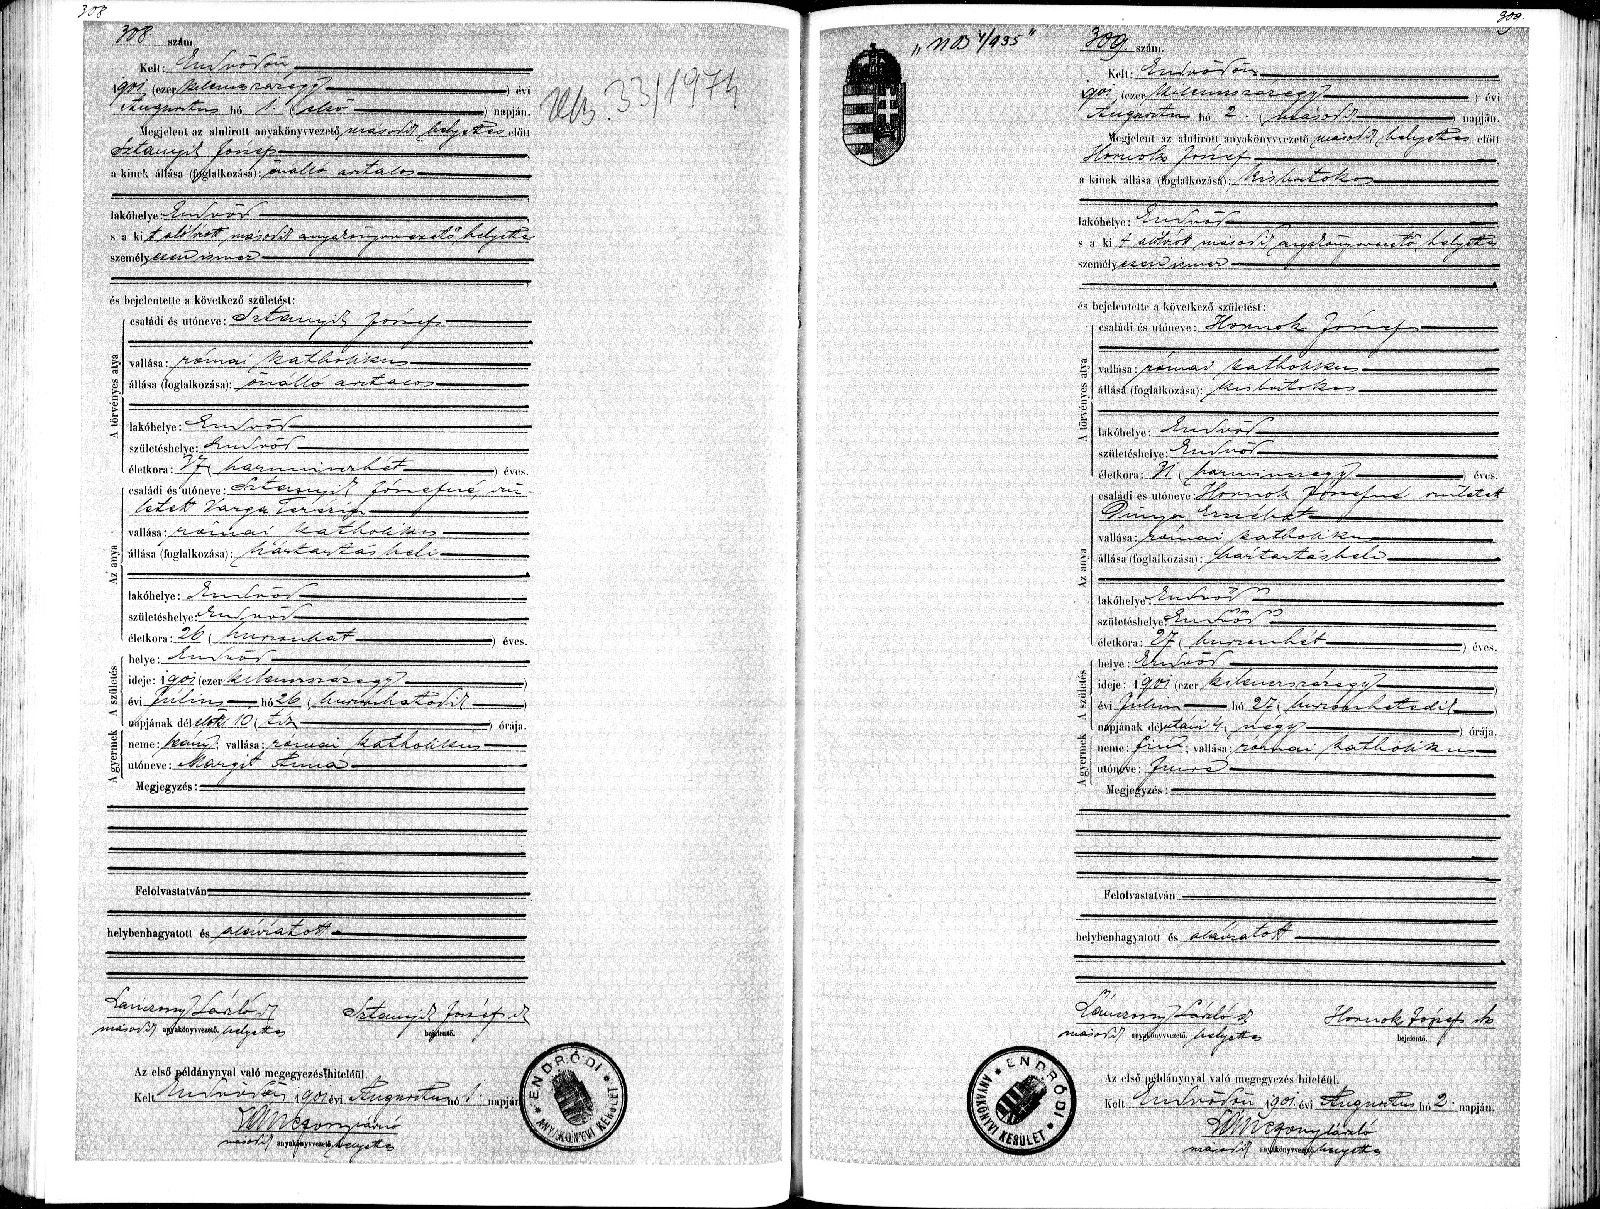 308
308 szám
Kelt: Endrődön
1901 (ezer kilenczszázegy) évi
Augusztus hó 1. (első) napján.
Megjelent az alulirott anyakönyvvezető második helyettes előtt
Sztanyik József
a kinek állása (foglalkozása): önálló asztalos
lakóhelye: Endrőd
s a kit alólirott, második anyakönyvvezető helyettes
személyesen ismer
és bejelentette a következő születést:
A törvényes atya
családi és utóneve: Sztanyik József
vallása: római katholikus
állása (foglalkozása): önálló asztalos
lakóhelye: Endrőd
születéshelye: Endrőd
életkora: 37 (harminczhét) éves.
Az anya
családi és utóneve: Sztanyik Józsefné szü-
letett Varga Terézia
vallása: római katholikus
állása (foglalkozása): háztartásbeli
lakóhelye: Endrőd
születéshelye: Endrőd
életkora: 26 (huszonhat) éves.
A születés
helye: Endrőd
ideje: 1901 (ezer kilenczszázegy)
évi Július hó 26 (huszonhatodik)
napjának délelőtt 10 (tíz) órája.
A gyermek
neme: leány; vallása: római katholikus
utóneve: Margit Anna
Megjegyzés:
Felolvastatván
helybenhagyatott és aláiratott
László
Sztanyik József
második anyakönyvvezető. helyettes
bejelentő.
Az első példánynyal való megegyezés hiteléül.
Kelt Endrődön 1901 évi Augusztus hó 1 napján
László
második anyakönyvvezető. helyettes
ENDRŐDI ANYAKÖNYVI KERÜLET
33/1974
309
309 szám.
Kelt: Endrődön
1901 (ezer kilenczszázegy) évi
Augusztus hó 2. (második) napján.
Megjelent az alulirott anyakönyvvezető második helyettes előtt
Hornok József
a kinek állása (foglalkozása): kisbirtokos
lakóhelye: Endrőd
s a kit alólirott második anyakönyvvezető helyettes
személyesen ismer
és bejelentette a következő születést:
A törvényes atya
családi és utóneve: Hornok József
vallása: római katholikus
állása (foglalkozása): kisbirtokos
lakóhelye: Endrőd
születéshelye: Endrőd
életkora: 31 (harminczegy) éves.
Az anya
családi és utóneve: Hornok Józsefné született
Dinya Erzsébet
vallása: római katholikus
állása (foglalkozása): háztartásbeli
lakóhelye: Endrőd
születéshelye: Endrőd
életkora: 27 (huszonhét) éves.
A születés
helye: Endrőd
ideje: 1901 (ezer kilenczszázegy)
évi Julius hó 27 (huszonhetedik)
napjának délután 4 (négy) órája.
A gyermek
neme: fiu; vallása: római katholikus
utóneve: Imre
Megjegyzés:
Felolvastatván
helybenhagyatott és aláiratott
László
Hornok József
második anyakönyvvezető. helyettes
bejelentő.
Az első példánynyal való megegyezés hiteléül.
Kelt Endrődön 1901 évi Augusztus hó 2. napján.
László
második anyakönyvvezető. helyettes
ENDRŐDI ANYAKÖNYVI KERÜLET